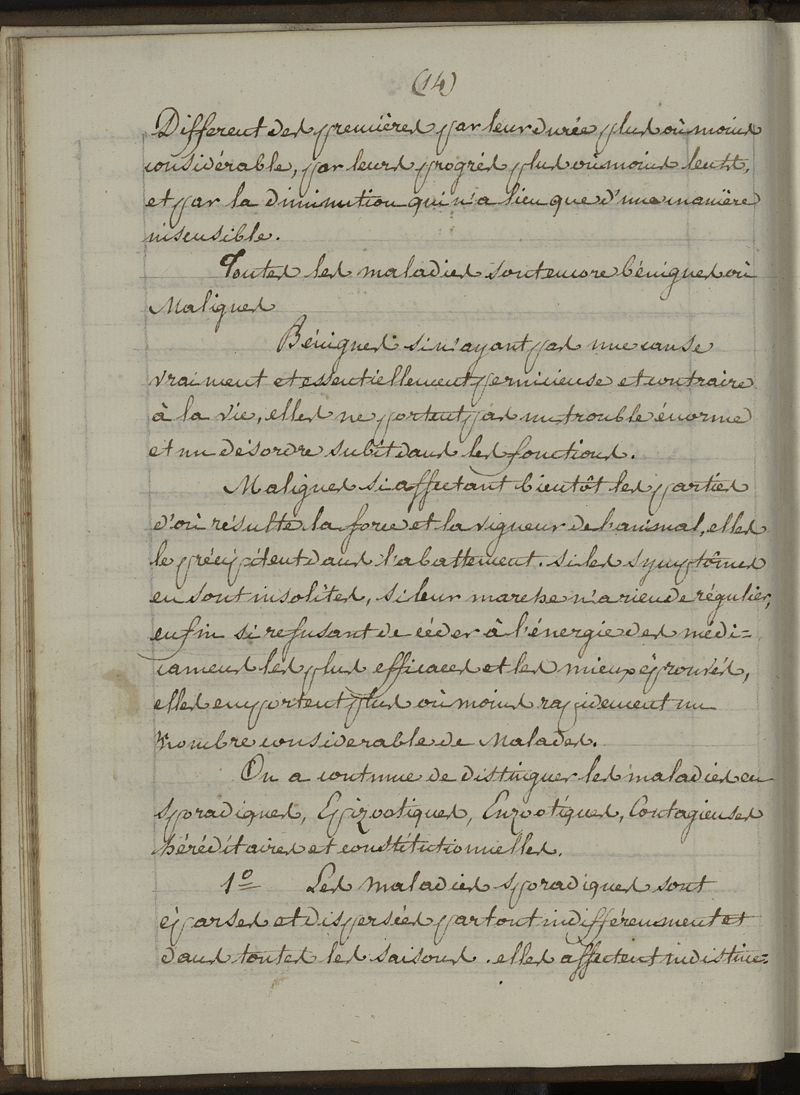 (14)
Different des premières par leur durée plus où moins
considérable, par leurs progrès plus où moins lents,
et par la diminution qui n'a lieu que d'une manière
insensible.
Toutes les maladies sont encore bénignes où
Malignes
Bénignes si n'ayant pas une cause
vraiment et essentiellement pernicieuse et contraire
à la vie, elles ne portent pas un trouble énorme
et un désordre subit dans les fonctions.
Malignes si affectant bientôt les parties
d'où résulte la force et la vigueur de l'animal, elles
le précipitent dans l'abattement. si les symptômes
en sont insolites, si leur marche n'a rien de régulier,
enfin si refusant de céder à l'énergie des médi=
camens les plus efficaces et les mieux éprouvés,
elles emportent plus où moins rapidement un
Nombre considerable de Malades.
On a coutume de distinguer les maladies en
sporadiques, Epizootiques, Enzootiques, Contagieuses
héréditaires et constitutionnelles.
1º Les maladies sporadiques sont
éparses et dispersées partout indifféremment et
dans toutes les saisons. elles affectent indistinc=